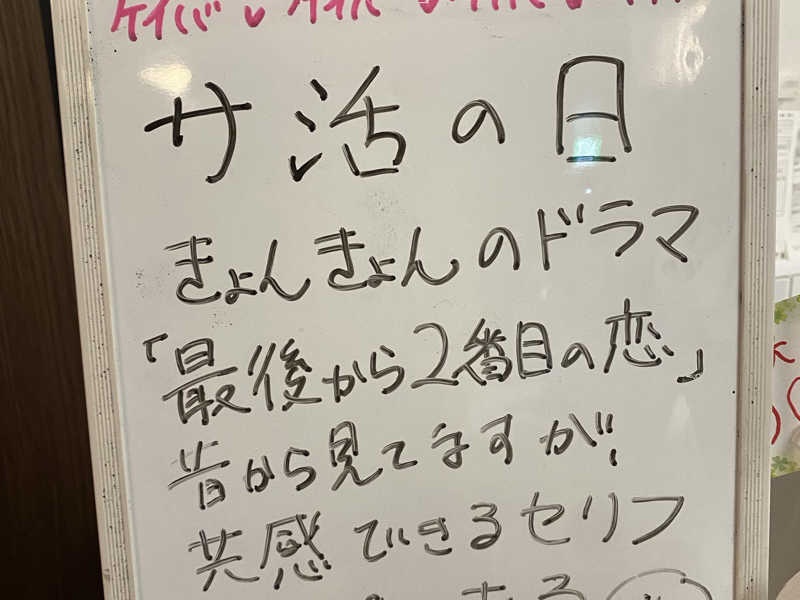 サ活の日
きょんきょんのドラマ
「最後から2番目の恋」
昔から見てますが!
共感できるセリフ